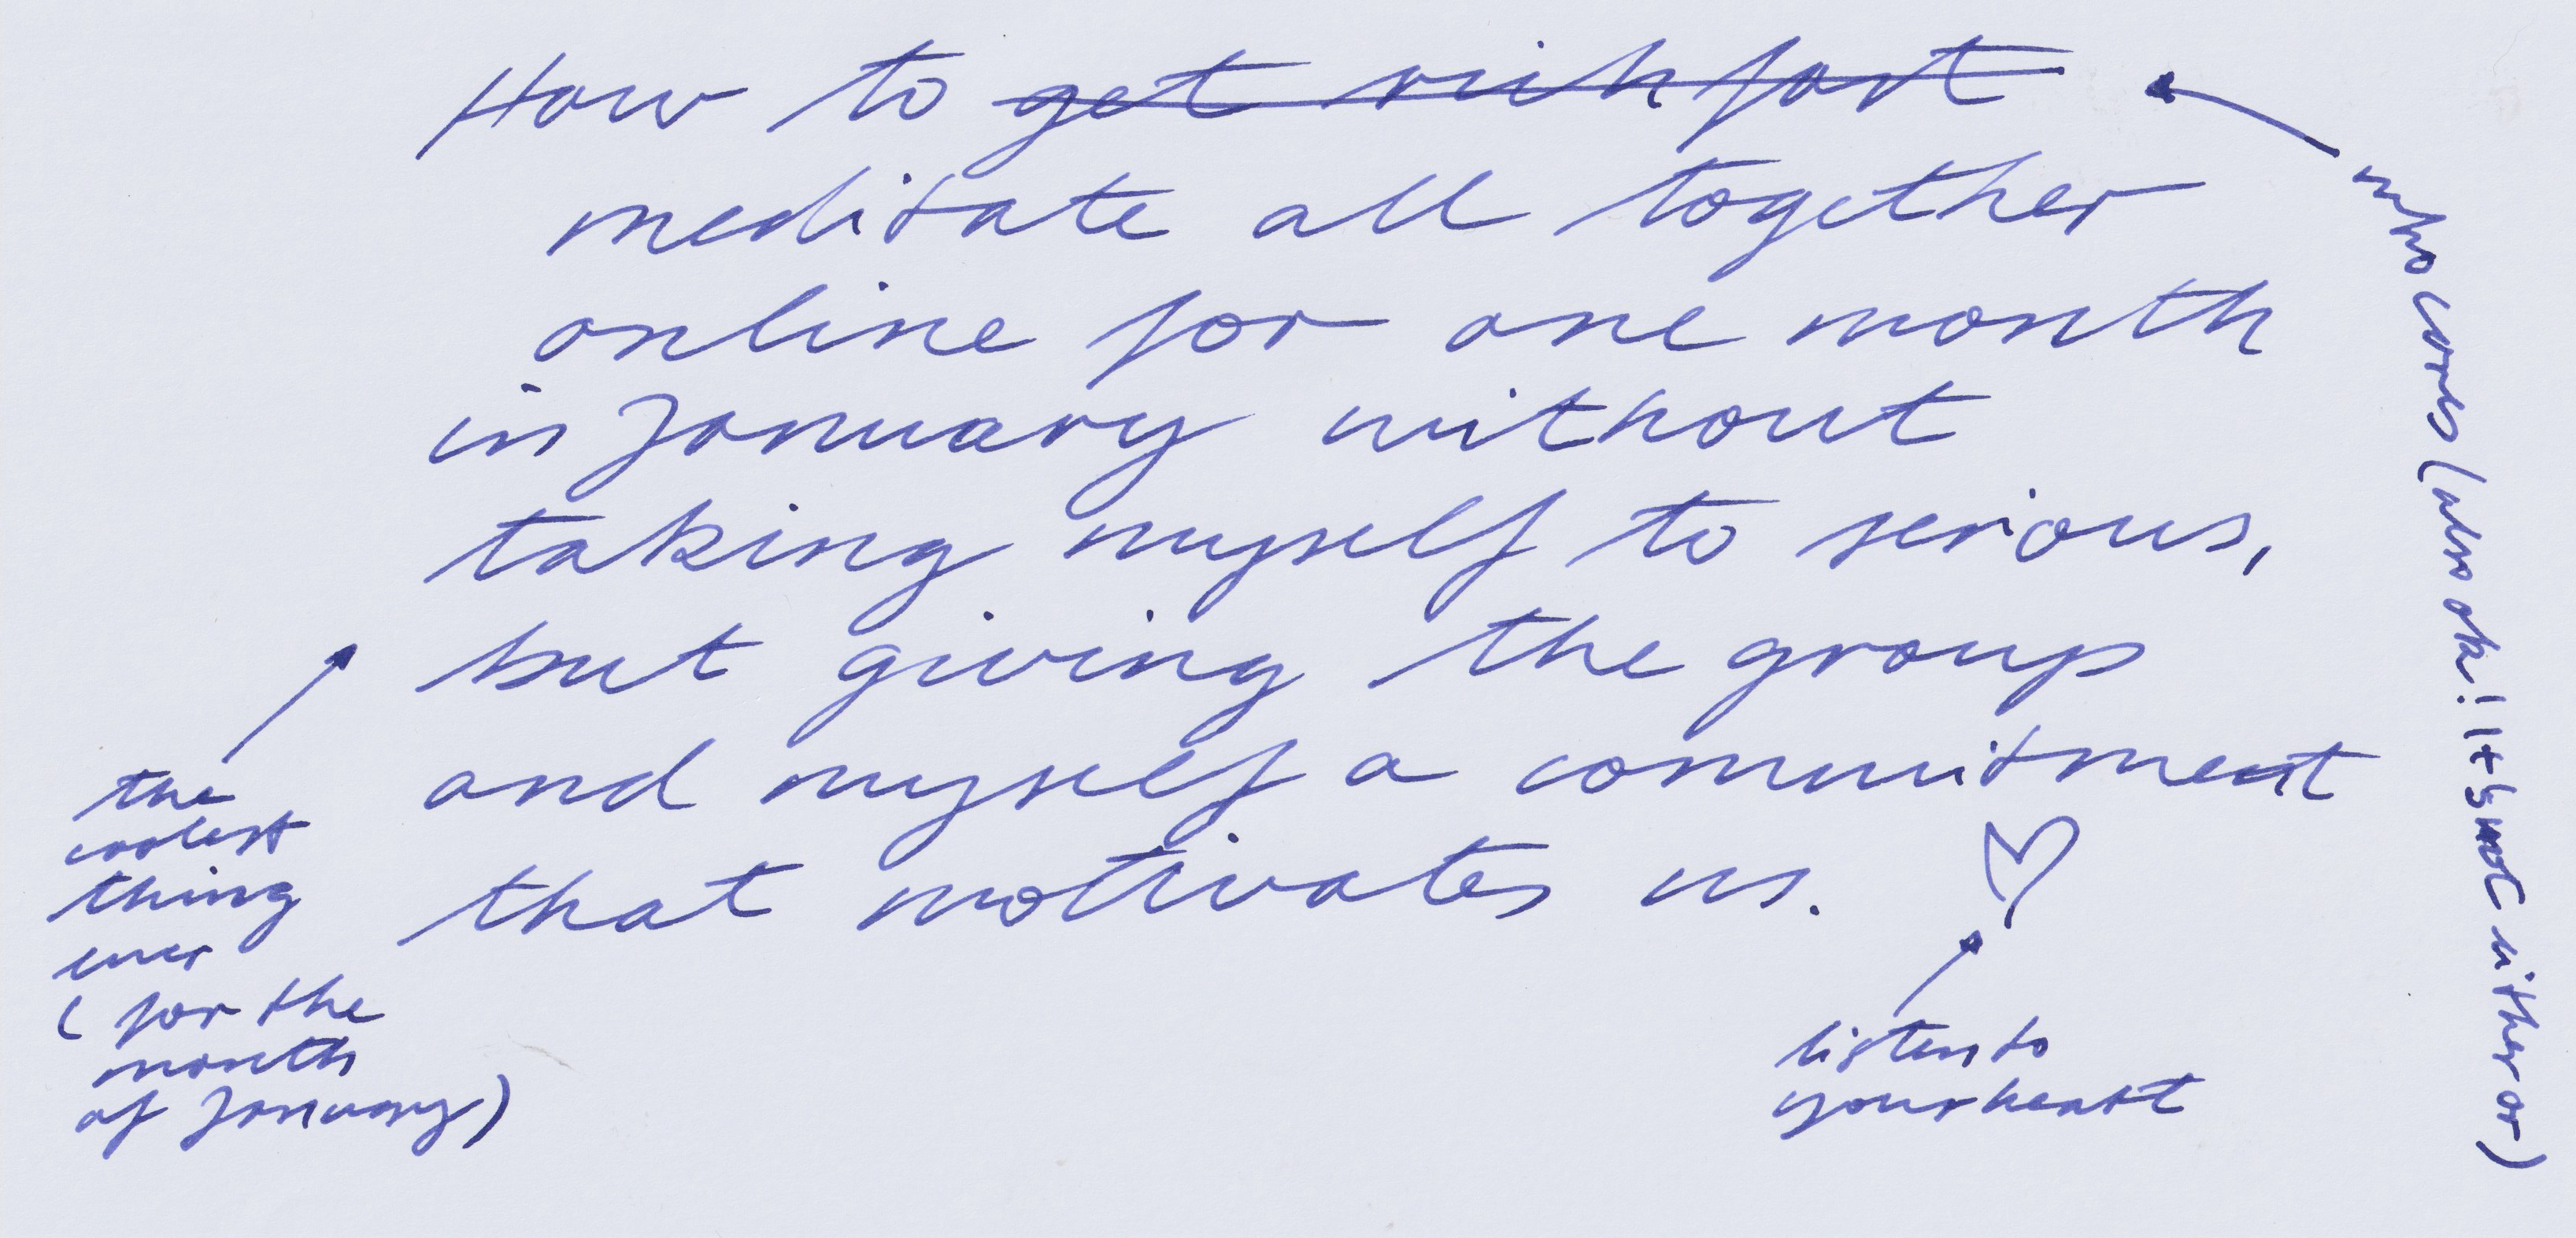 How to get rich fast
meditate all together
online for one month
in January without
taking myself to serious,
but giving the group
and myself a commitment
that motivates us.
the
coolest
thing
ever
(for the
month
of January)
listen to
your heart
who cares (also ok! It's not either or)